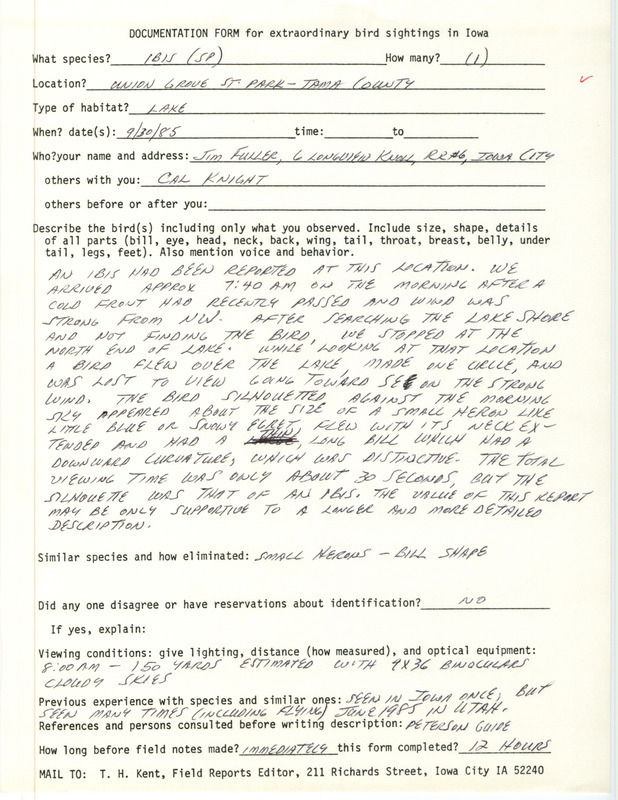 DOCUMENTATION FORM for extraordinary bird sightings in Iowa
What species? IBIS (SP) How many? (1)
Location? UNION GROVE ST. PARK - TAMA COUNTY
Type of habitat? LAKE
When? date(s): 9/30/85 time: to
Who?your name and address: JIM FULLER, 6 LONGVIEW KNOLL, RR#6, IOWA CITY
others with you: CAL KNIGHT
others before or after you:
Describe the bird(s) including only what you observed. Include size, shape, details
of all parts (bill, eye, head, neck, back, wing, tail, throat, breast, belly, under
tail, legs, feet). Also mention voice and behavior.
AN IBIS HAD BEEN REPORTED AT THIS LOCATION. WE
ARRIVED APPROX 7:40 AM ON THE MORNING AFTER A
COLD FRONT HAD RECENTLY PASSED AND WIND WAS
STRONG FROM NW. AFTER SEARCHING THE LAKE SHORE
AND NOT FINDING THE BIRD, WE STOPPED AT THE
NORTH END OF LAKE. WHILE LOOKING AT THAT LOCATION
A BIRD FLEW OVER THE LAKE, MADE ONE CIRCLE, AND
WAS LOST TO VIEW GOING TOWARD SE ON THE STRONG
WIND. THE BIRD SILHOUETTED AGAINST THE MORNING
SKY APPEARED ABOUT THE SIZE OF A SMALL HERON LIKE
LITTLE BLUE OR SNOWY EGRET, FLEW WITH ITS NECK EX-
TENDED AND HAD A THIN, LONG BILL WHICH HAD A
DOWNWARD CURVATURE, WHICH WAS DISTINCTIVE. THE TOTAL
VIEWING TIME WAS ONLY ABOUT 30 SECONDS, BUT THE
SILHOUETTE WAS THAT OF AN IBIS. THE VALUE OF THIS REPORT
MAY BE ONLY SUPPORTIVE TO A LONGER AND MORE DETAILED
DESCRIPTION.
Similar species and how eliminated: SMALL HERONS - BILL SHAPE
Did any one disagree or have reservations about identification? NO
If yes, explain:
Viewing conditions: give lighting, distance (how measured), and optical equipment:
8:00 AM - 150 YARDS ESTIMATED WITH 9X36 BINOCULARS
CLOUDY SKIES
Previous experience with species and similar ones: SEEN IN IOWA ONCE, BUT
SEEN MANY TIMES (INCLUDING FLYING) JUNE 1985 IN UTAH.
References and persons consulted before writing description: PETERSON GUIDE
How long before field notes made? IMMEDIATELY this form completed? 12 HOURS
MAIL TO: T. H. Kent, Field Reports Editor, 211 Richards Street, Iowa City IA 52240